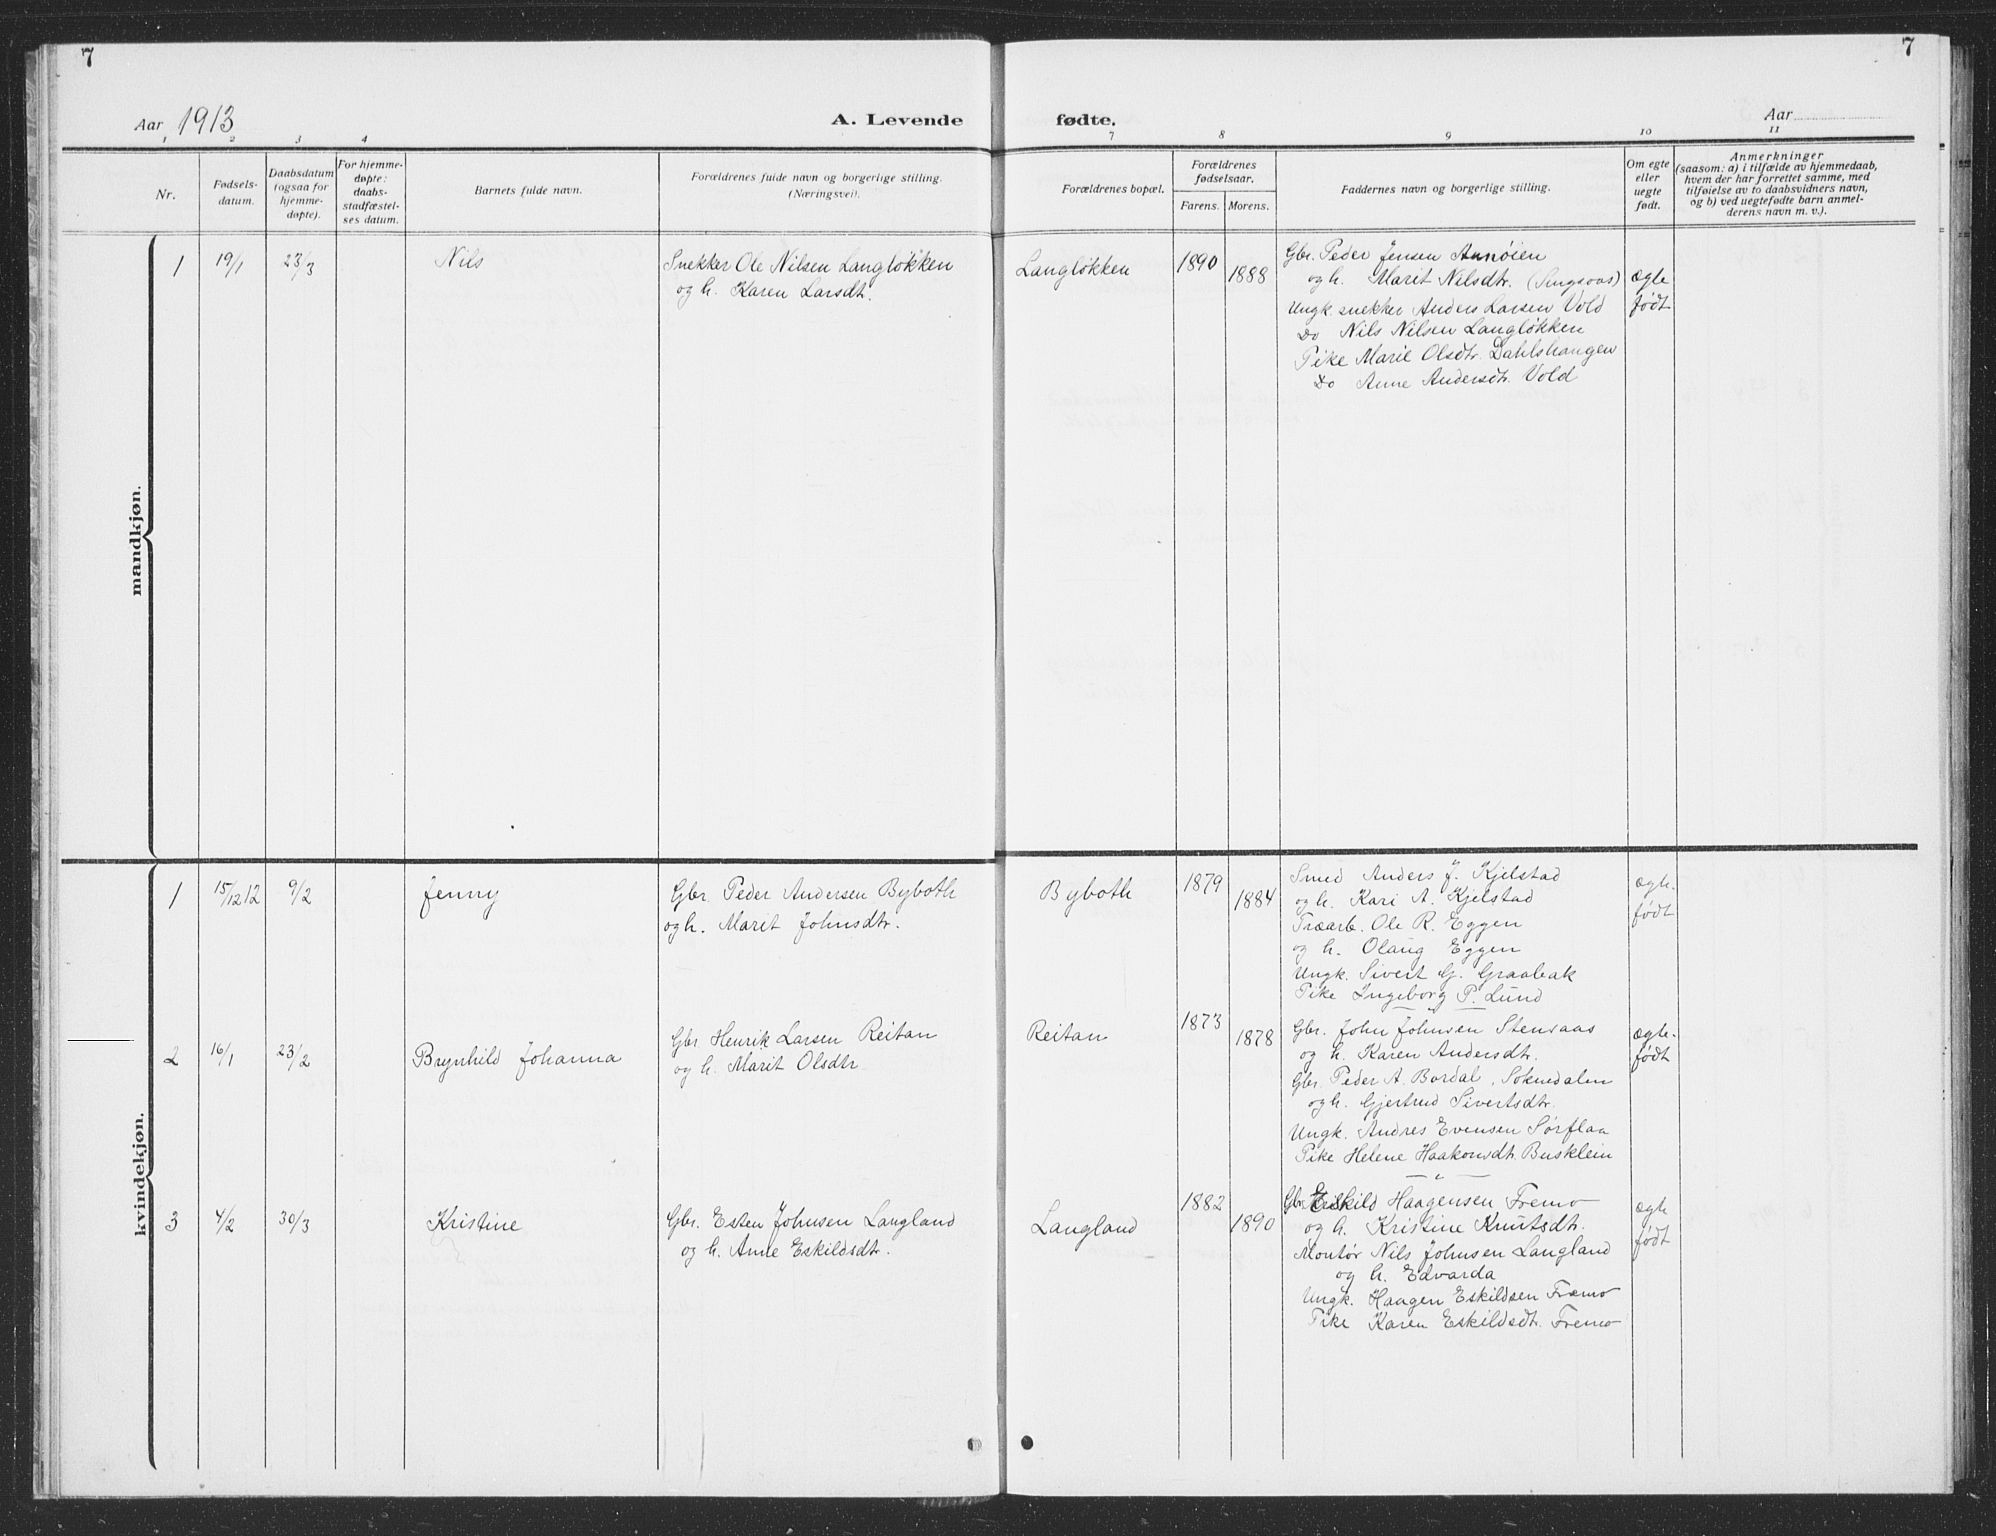 7
7
Aar 1913
A. Levende
fødte.
Aar
1
2
3
4
7
8
9
10
11
Nr.
Fødsels-
datum.
Daabsdatum
(ogsaa for
hjemme-
døpte).
For hjemme-
døpte:
daabs-
stadfæstel-
ses datum.
Barnets fulde navn.
Forældrenes fulde navn og borgerlige stilling.
(Næringsvei).
Forældrenes bopæl.
Forældrenes
fødselsaar.
Farens.
Morens.
Faddernes navn og borgerlige stilling.
Om egte
eller
uegte
født.
Anmerkninger
(saasom: a) i tilfælde av hjemmedaab,
hvem der har forrettet samme, med
tilføielse av to daabsvidners navn,
og b) ved uegtefødte barn anmel-
derens navn m. v.).
mandkjøn.
1
19/1
23/3
Nils
Snekker Ole Nilsen Langløkken
og h. Karen Larsdt.
Langløkken
1890
1888
Gbr. Peder Jensen Aunøien
og h. Marit Nilsdtr. (Singsaas)
Ungk. snekker Anders Larsen Vold
Do Nils Nilsen Langløkken
Pike Marie Olsdtr. Dahlshaugen
Do Anne Andersdtr. Vold
ægte
født
kvindekjøn.
1
15/12 12
9/2
Jenny
Gbr. Peder Andersen Byboth
og h. Marit Johnsdtr.
Byboth
1879
1884
Smed Anders J. Kjelstad
og h. Kari A. Kjelstad
Træarb. Ole R. Eggen
og h. Olaug Eggen
Ungk. Sivert G. Graabak
Pike Ingeborg P. Lund
ægte
født
2
16/1
23/2
Brynhild Johanna
Gbr Henrik Larsen Reitan
og h. Marit Olsdtr
Reitan
1873
1878
Gbr. John Johnsen Stensaas
og h. Karen Andersdtr.
Gbr. Peder A. Bordal, Soknedalen
og h. Gjertrud Sivertsdtr.
Ungk. Andres Evensen Sørflaa
Pike Helene Haakonsdtr. Busklein
ægte-
født
3
4/2
30/3
Kristine
Gbr. Esten Johnsen Langland
og h. Anne Eskildsdtr.
Langland
1882
1890
Gbr. Eskild Haagensen Fremo
og h. Kristine Knutsdtr.
Montør Nils Johnsen Langland
og h. Edvarda
Ungk. Haagen Eskildsen Fremo
Pike Karen Eskildsdtr. Fremo
ægte
født